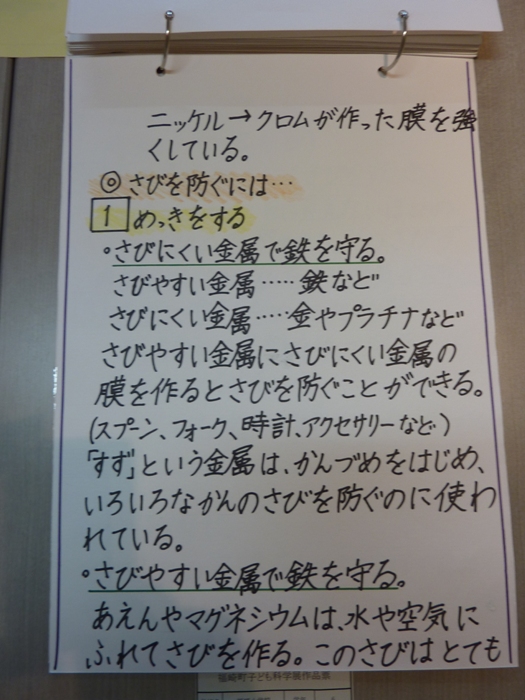 ニッケル→クロムが作った膜を強
くしている。
◎さびを防ぐには…
1 めっきをする
・さびにくい金属で鉄を守る。
さびやすい金属……鉄など
さびにくい金属……金やプラチナなど
さびやすい金属にさびにくい金属の
膜を作るとさびを防ぐことができる。
(スプーン、フォーク、時計、アクセサリーなど)
「すず」という金属は、かんづめをはじめ、
いろいろなかんのさびを防ぐのに使わ
れている。
・さびやすい金属で鉄を守る。
あえんやマグネシウムは、水や空気に
ふれてさびを作る。このさびはとても
福崎町子ども科学展作品票